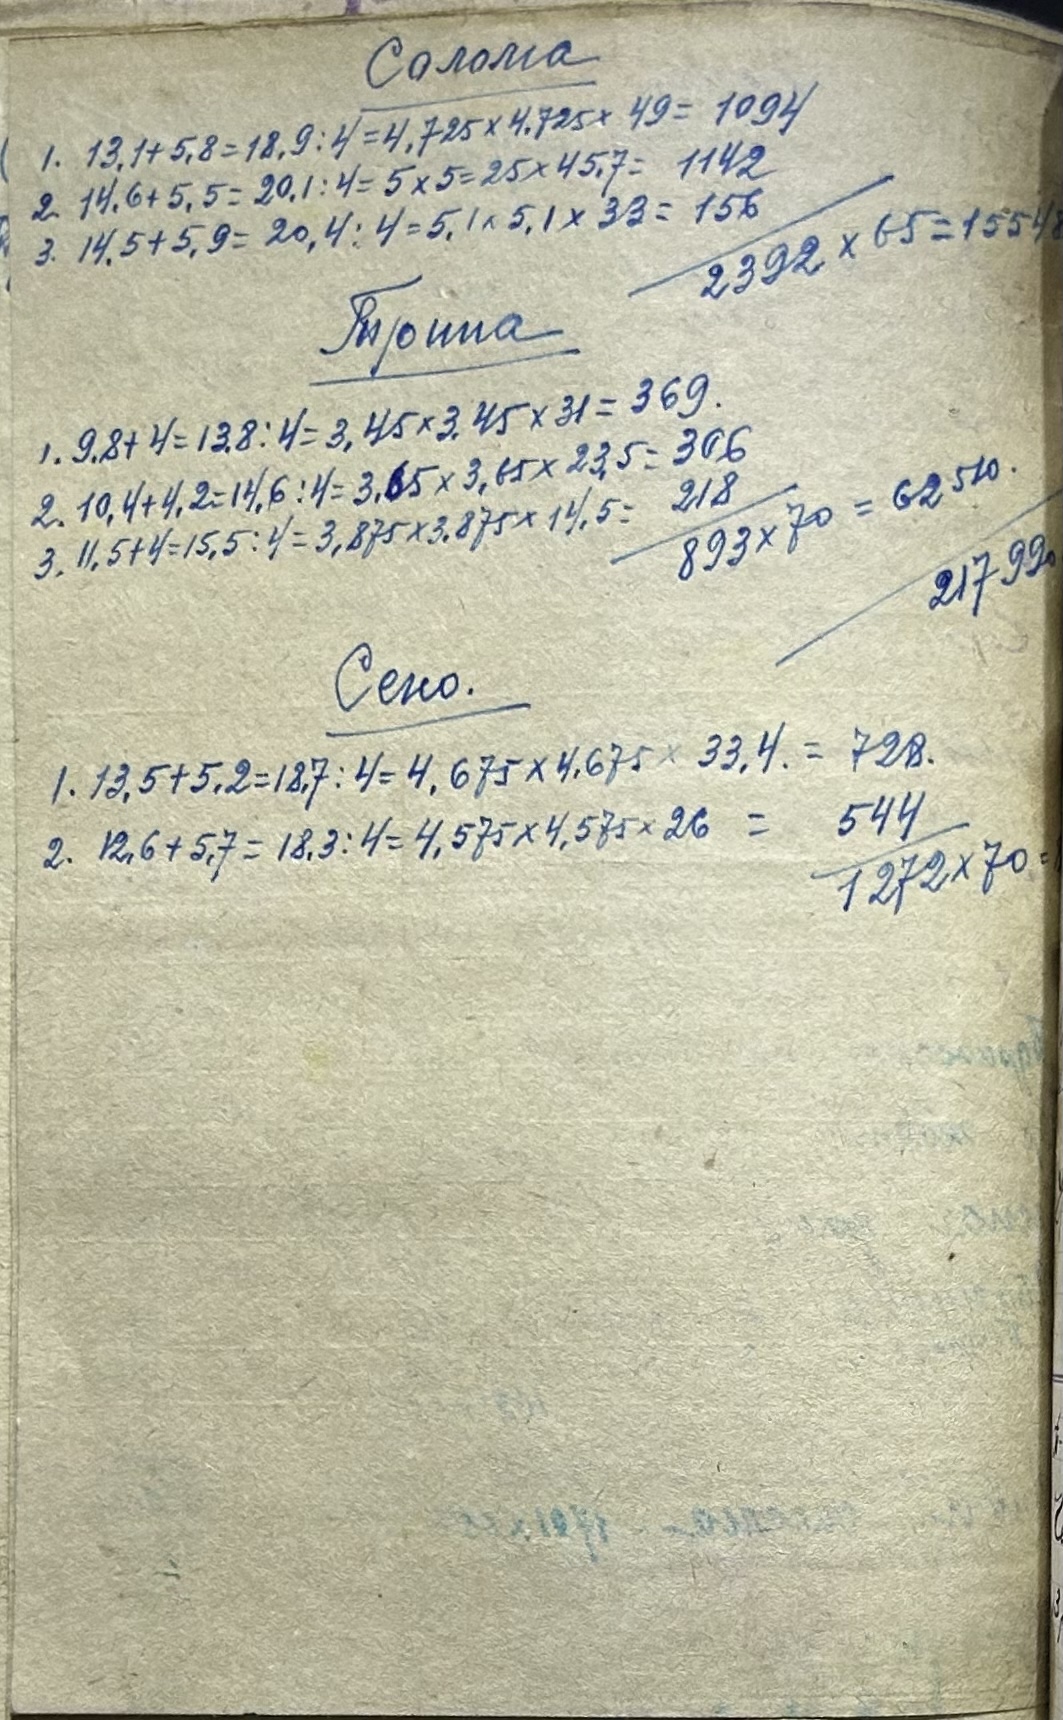 Солома
1. 13,1+5,8=18,9:4=4,725×4,725×49= 1094
2. 14,6+5,5= 20,1:4= 5×5=25×45,7= 1142
3. 14,5+5,9= 20,4:4=5,1×5,1×33= 156
2392×65=1554
1. 9,8+4=13,8:4=3,45×3,45×31=369.
2. 10,4+4,2=14,6:4=3,65×3,65×23,5=306
3. 11,5+4=15,5:4=3,875×3,875×14,5= 218
893×70=62510.
217990
Сено.
1. 13,5+5,2=18,7:4=4,675×4,675×33,4.= 728.
2. 12,6+5,7=18,3:4=4,575×4,575×26 = 544
1272×70=